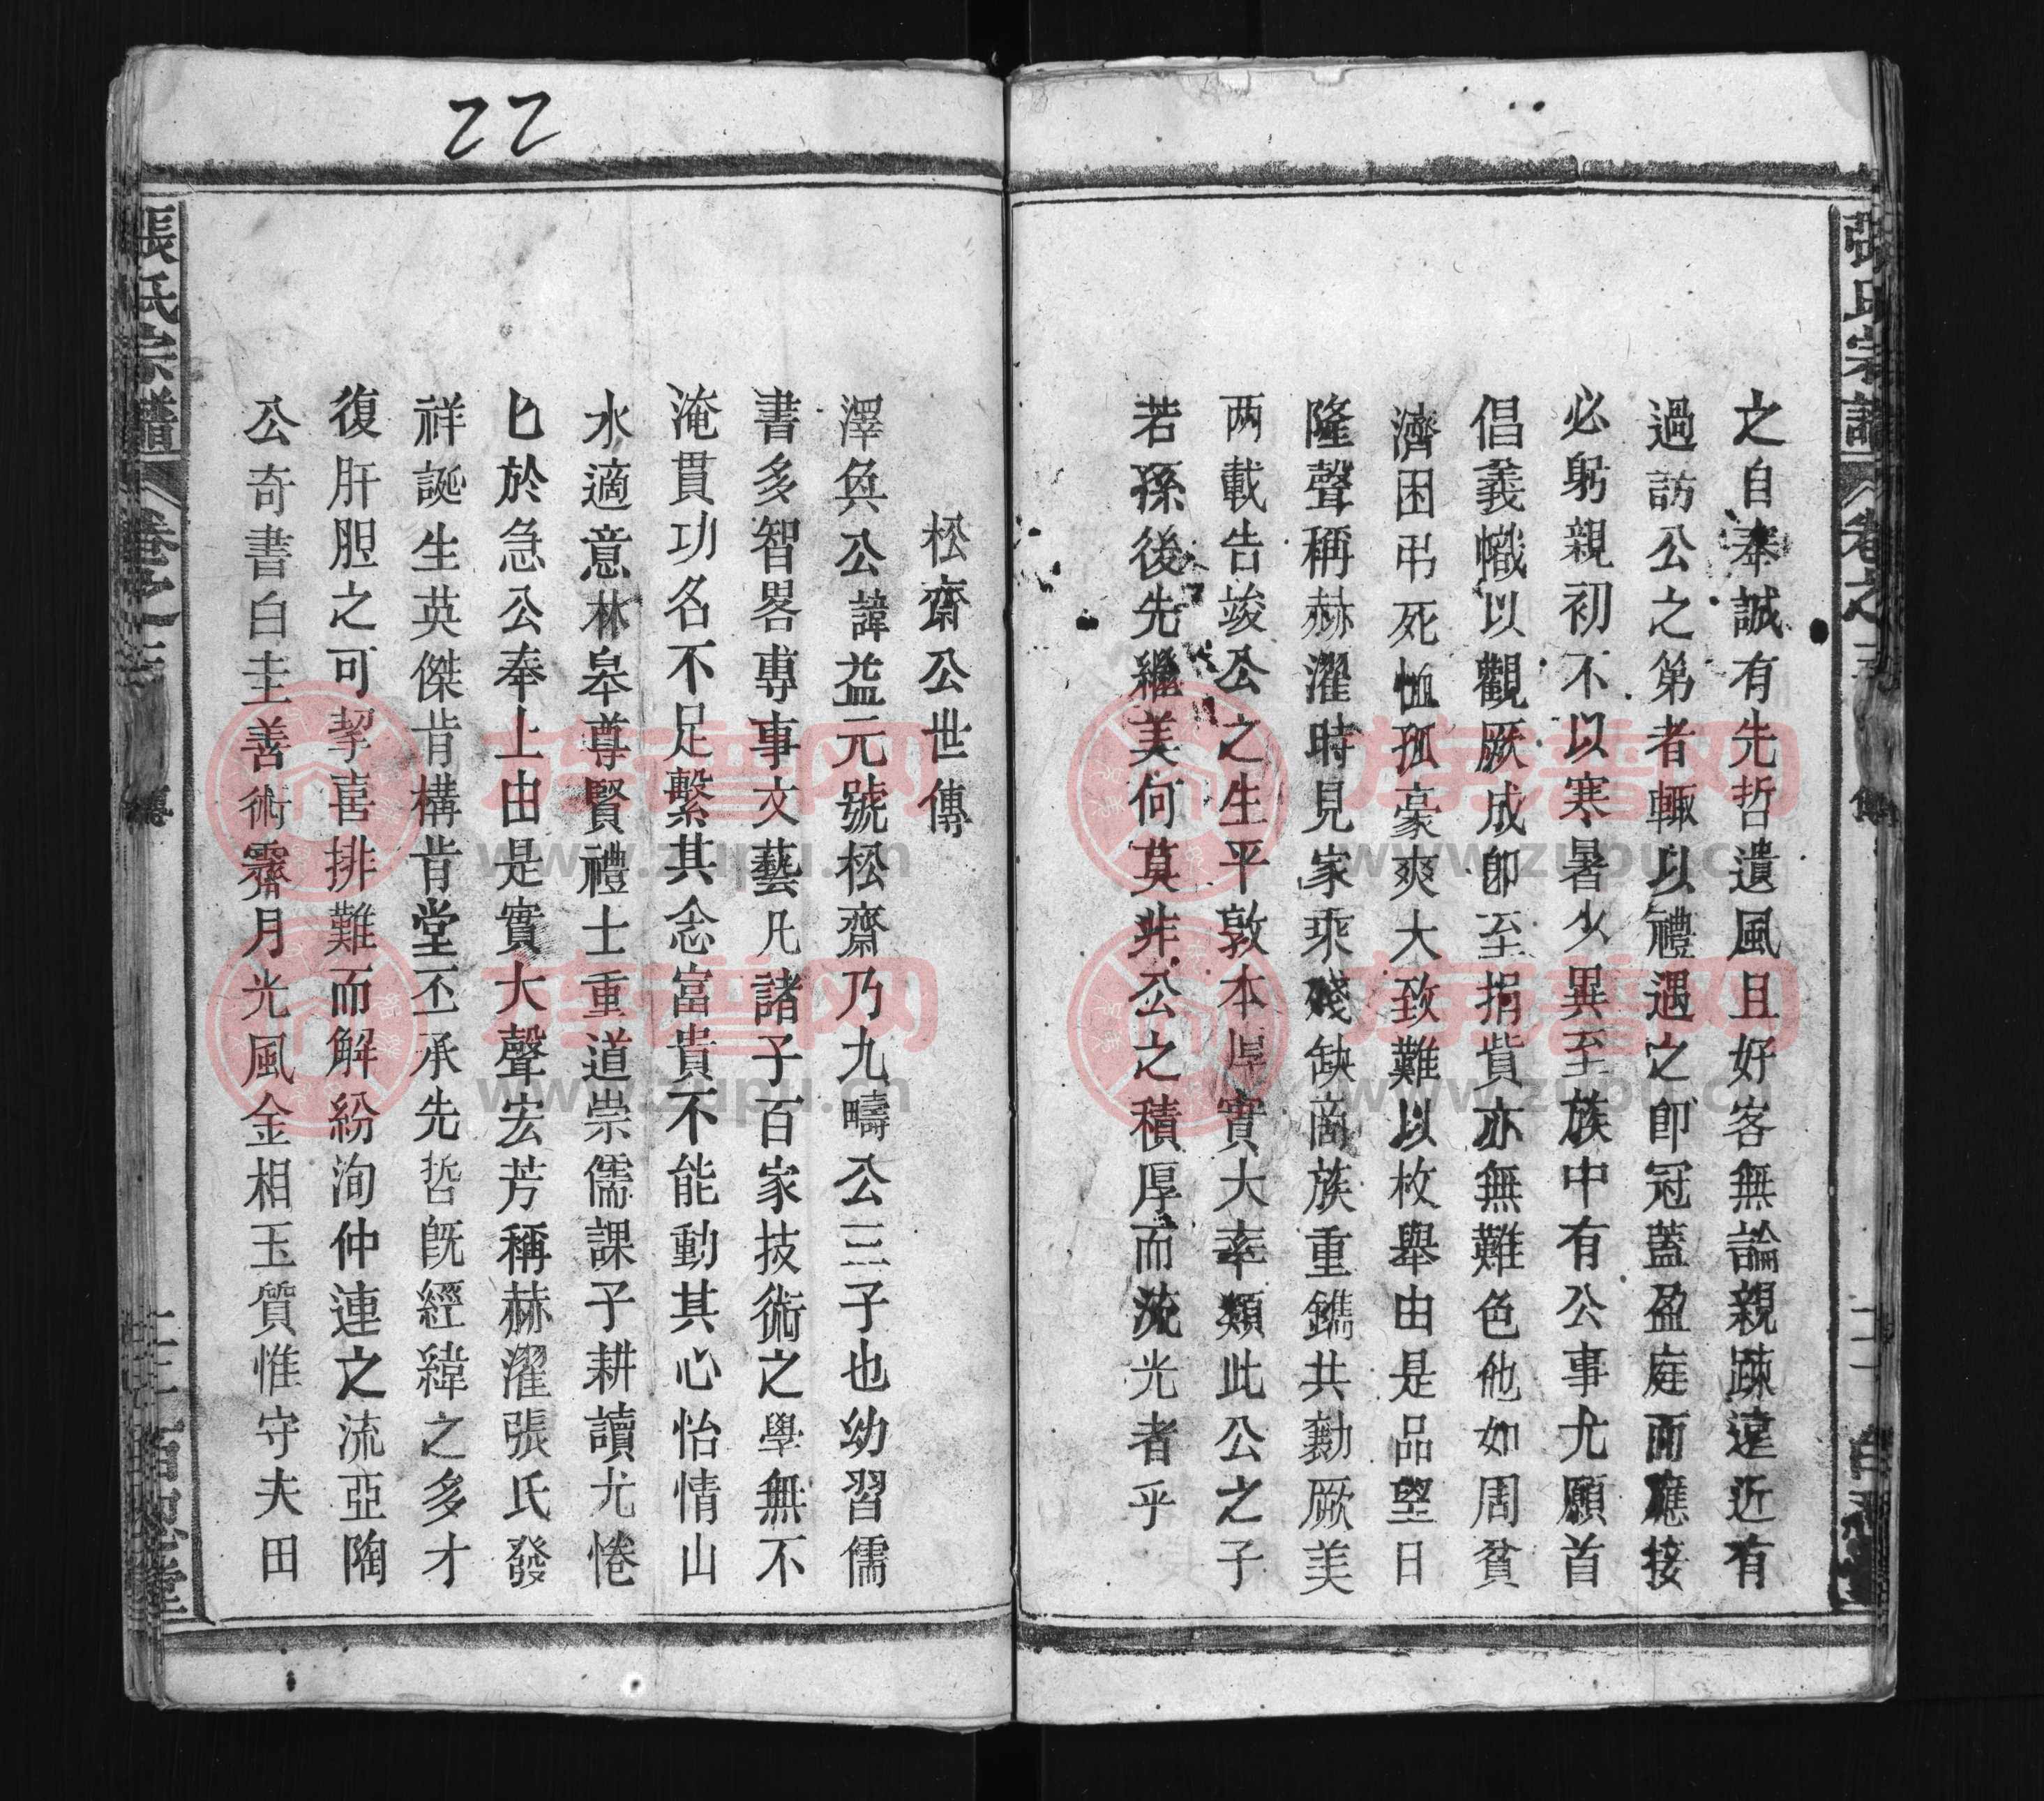 張氏宗譜
卷之
傳
之自奉誠有先哲遺風且好客無論親疎遠近有
過訪公之第者輙以禮遇之卽冠蓋盈庭而應接
必躬親初不以寒暑少異至族中有公事尤願首
倡義幟以觀厥成卽至捐貲亦無難色他如周貧
濟困弔死恤孤豪爽大致難以枚舉由是品望日
隆聲稱赫濯時見家乘殘缺商族重鐫共勷厥美
两載告竣公之生平敦本厚實大率類此公之子
若孫後先繼美何莫非公之積厚而流光者乎
22
松齋公世傳
澤奐公諱益元號松齋乃九疇公三子也幼習儒
書多智畧專事文藝凡諸子百家技術之學無不
淹貫功名不足繫其念富貴不能動其心怡情山
水適意林皋尊賢禮士重道崇儒課子耕讀尤惓
匕於急公奉上由是實大聲宏芳稱赫濯張氏發
祥誕生英傑肯構肯堂丕承先哲旣經緯之多才
復肝胆之可挈喜排難而解紛洵仲連之流亞陶
公奇書白圭善術霽月光風金相玉質惟守夫田
張氏宗譜
卷之
傳
族谱网
www.zupu.cn
族谱网
www.zupu.cn
族谱网
www.zupu.cn
族谱网
www.zupu.cn